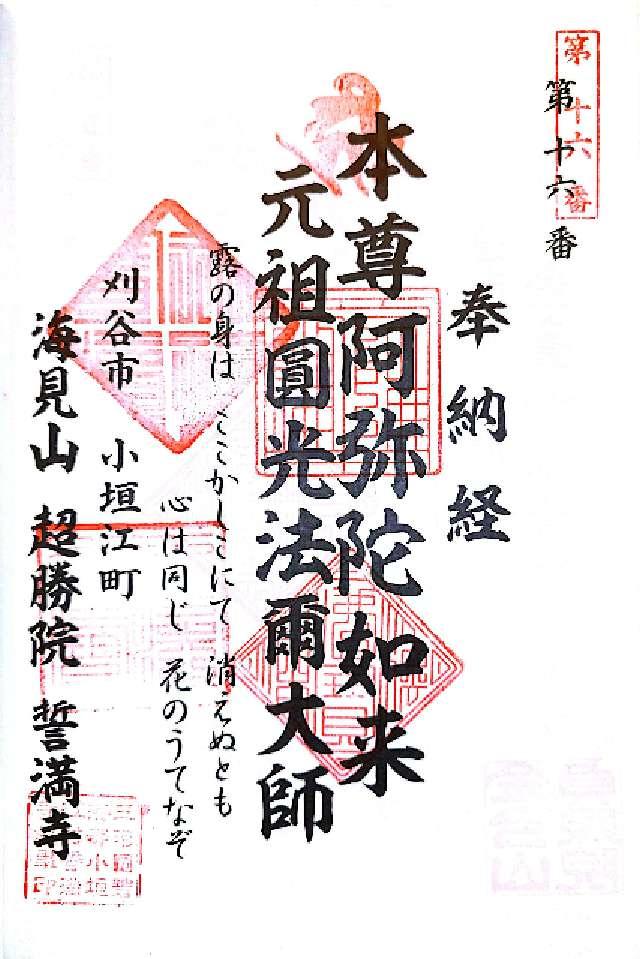 第十六番
第十六番
奉納経
本尊阿弥陀如来
元祖圓光法爾大師
露の身は ここかしこにて 消えぬとも
心は同じ 花のうてなぞ
刈谷市 小垣江町
海見山 超勝院 誓満寺